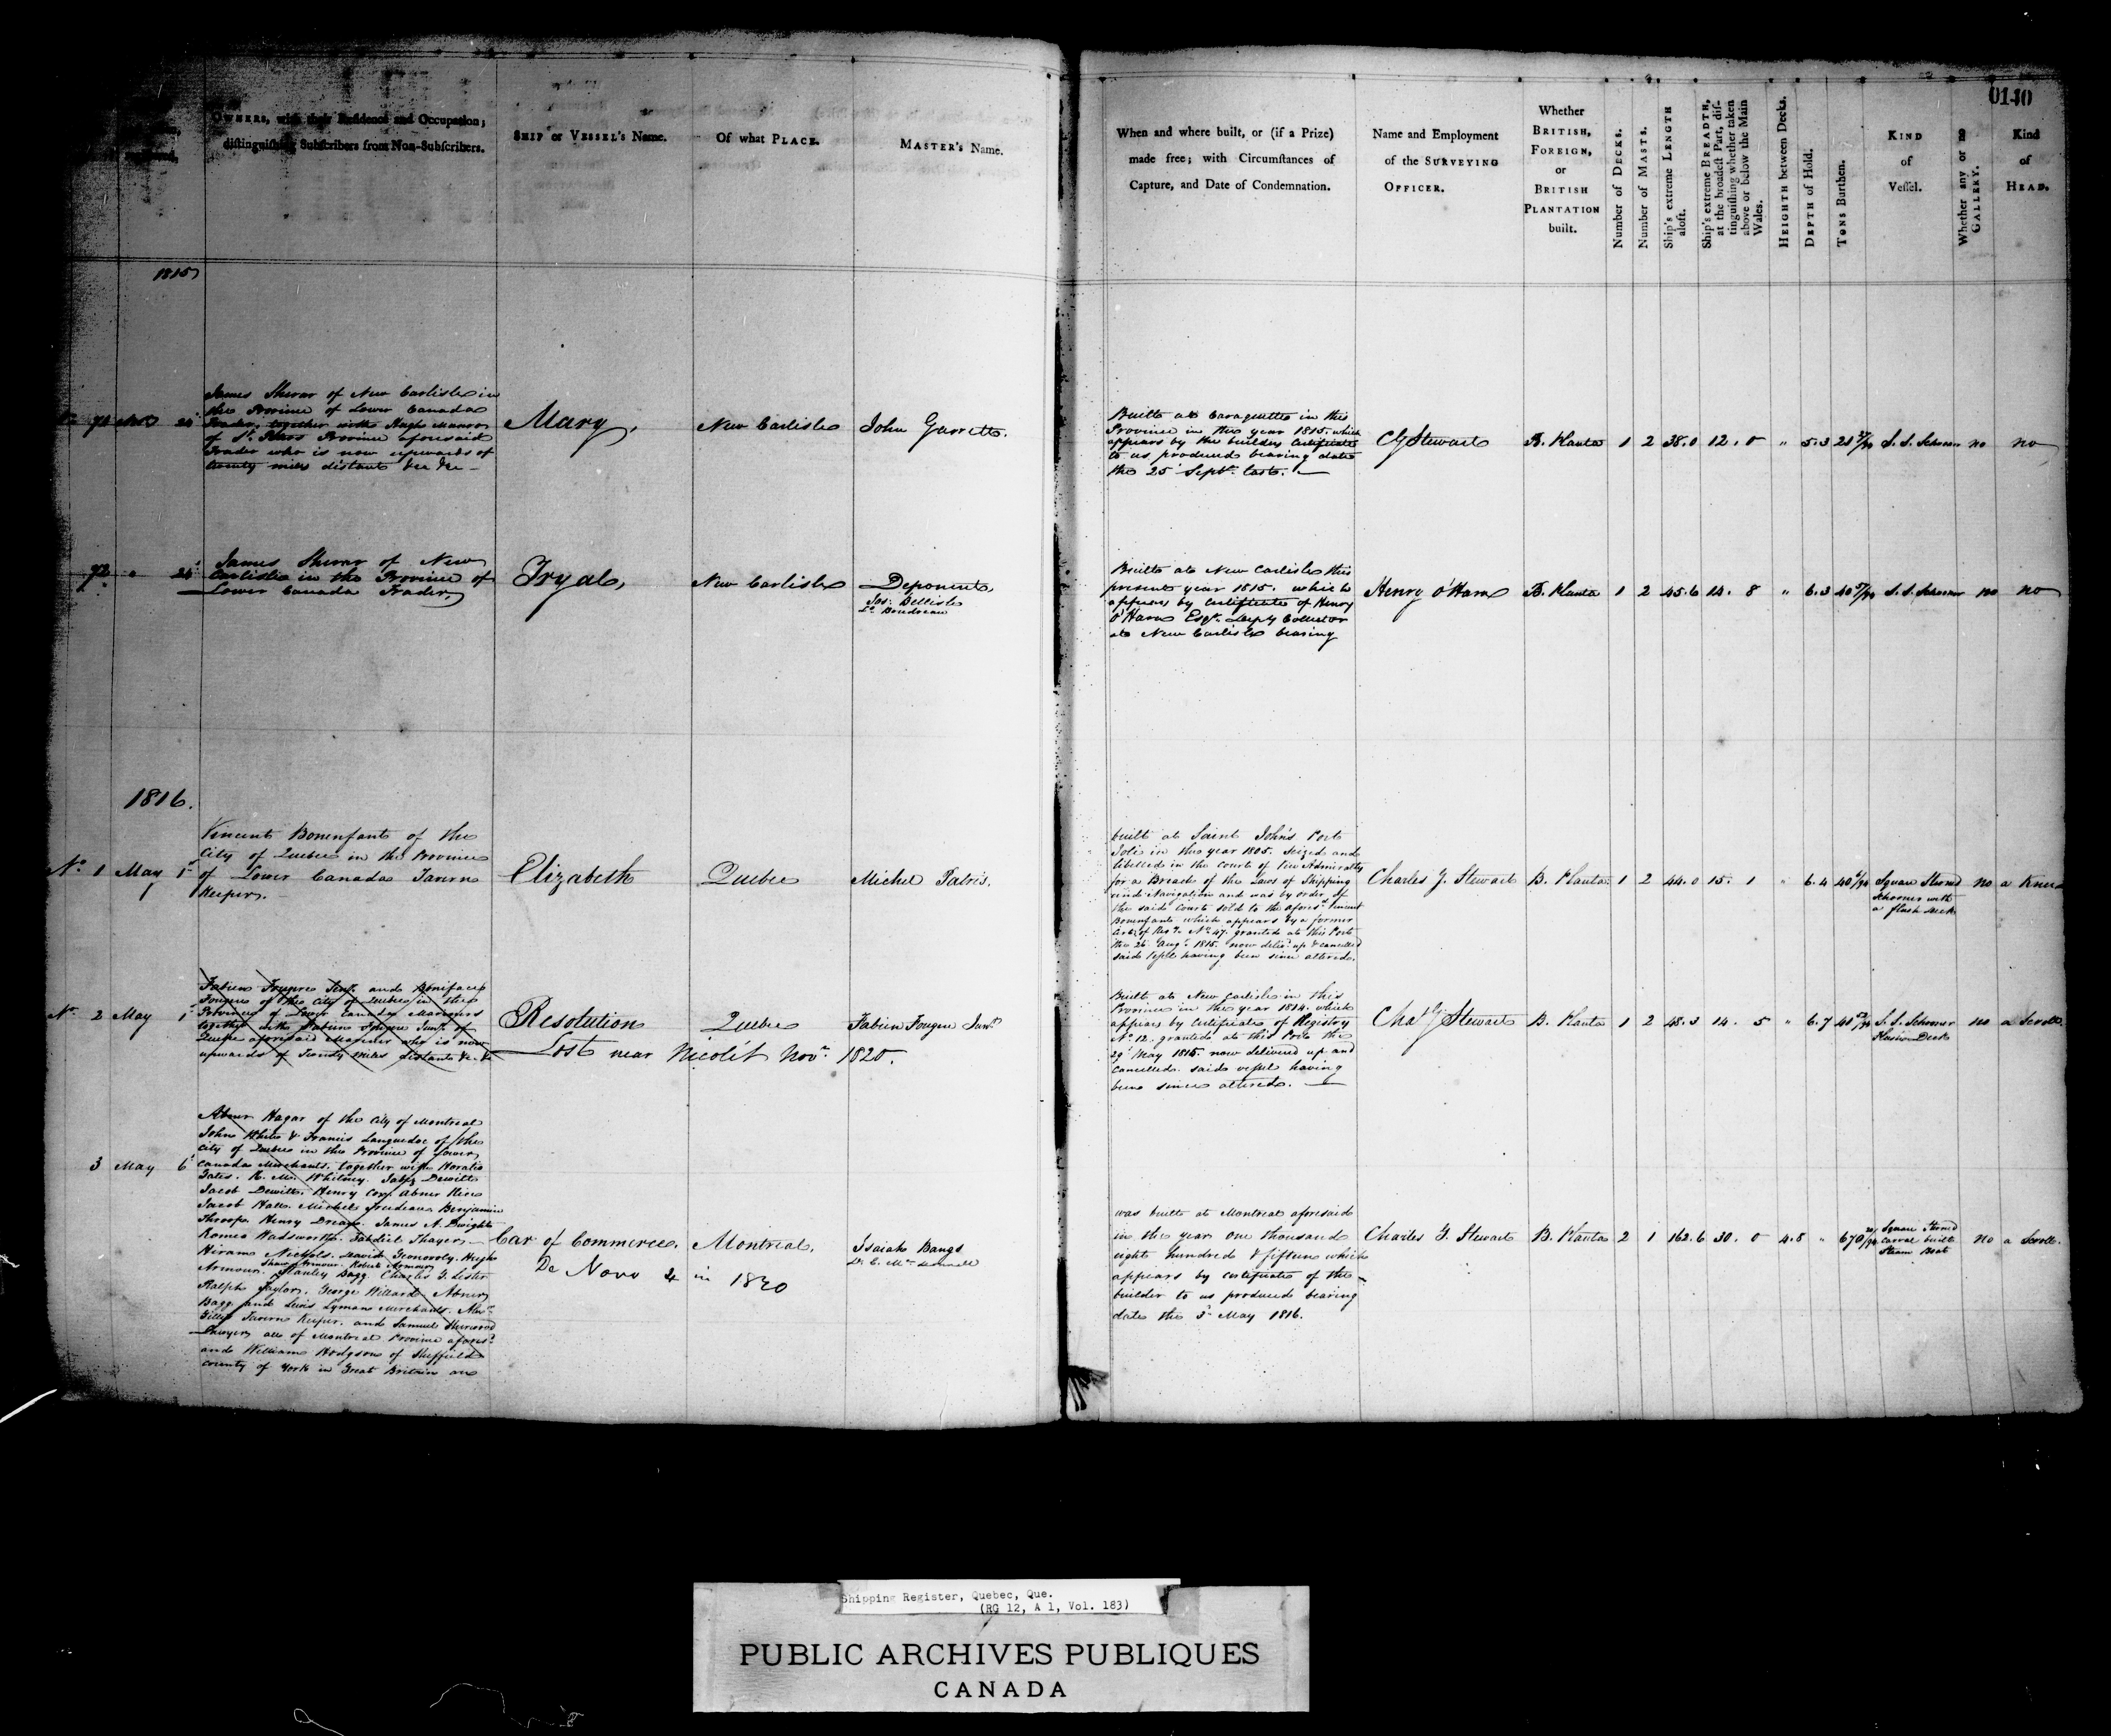 0140
OWNERS, with their Residence and Occupation;
distinguishing Subscribers from Non-Subscribers.
SHIP or VESSEL's Name.
Of what PLACE.
MASTER's Name.
When and where built, or (if a Prize)
made free; with Circumstances of
Capture, and Date of Condemnation.
Name and Employment
of the SURVEYING
OFFICER.
Whether
BRITISH,
FOREIGN,
or
BRITISH
PLANTATION
built.
Number of DECKS.
Number of MASTS.
Ship's extreme LENGTH
aloft.
Ship's extreme BREADTH,
at the broadest Part, dis-
tinguishing whether taken
above or below the Main
Wales.
HEIGHTH between Decks.
DEPTH of Hold.
TONS Burthen.
KIND
of
Vessel.
Whether any or no
GALLERY.
Kind
of
HEAD.
1815
James Sherar of New Carlisle in
the Province of Lower Canada
Trader, together with Hugh Munro
of St. Peters Province aforesaid
Trader who is now upwards of
twenty miles distant &c &c
Mary,
New Carlisle
John Garrett.
Built at Caraquette in this
Province in the year 1815. which
appears by the builders Certificate
to us produced bearing date
the 25 Septr. last.
CG Stewart
B. Planta
1 2 38.0 12. 0 " 5.3
S. S. Schooner
no
no
72 " 24
James Sherar of New
Carlisle in the Province of
Lower Canada Trader,
Tryal,
New Carlisle
Deponent
Jos: Bellisle
Ls. Boudreau
Built at New Carlisle this
present year 1815. which
appears by Certificate of Henry
O'Hara Esqr. Deputy Collector
at New Carlisle bearing
Henry O'Hara
B. Planta
1 2 45.6 14. 8 " 6.3
S. S. Schooner
no
no
1816.
No. 1 May 1
Vincent Bonenfant of the
City of Quebec in the Province
of Lower Canada Tavern
Keeper.
Elizabeth
Quebec
Michel Patris.
built at Saint John's Port
Joli in the year 1805. Seized and
libelled in the Court of Vice Admiralty
for a Breach of the Laws of Shipping
and Navigation and was by order of
the said Court sold to the aforesd. Vincent
Bonenfant which appears by a former
of Regy. No. 47. granted at this Port
the 26 Augt. 1815. now delivd. up & cancelled
said Vessel having been since altered.
Charles G. Stewart
B. Planta
1 2 44.0 15. 1 " 6.4
Square Sterned
Schooner with
a flush deck
no
a Knee
No. 2 May 1
Fabien Fougere Senr. and Boniface
Fougere of the City of Quebec in the
Province of Lower Canada Mariners
together with Fabien Fougere Junr. of
Quebec aforesaid Mariner who is now
upwards of Twenty miles distant &c. &c
Resolution
Quebec
Fabien Fougere Junr.
Lost near Nicolét Novr. 1820.
Built at New Carlisle in this
Province in the year 1814. which
appears by Certificate of Registry
No. 12. granted at this Port the
29 May 1815. now delivered up and
cancelled. said vessel having
been since altered.
Chas G Stewart
B. Planta
1 2 48.3 14. 5 " 6.7
S. S. Schooner
Flush Deck
no
a Scroll
3 May 6
Abner Hagar of the City of Montreal
John White & Francis Languedoc of the
City of Quebec in the Province of Lower
Canada Merchants. together with Horatio
Gates. N. M. Whitney. Jabez Dewitt
Jacob Dewitt. Henry Corse Abner Rice
Jacob Hall. Michel Trudeau Benjamin
Throop. Henry Drean. James A. Dwight
Romeo Wadsworth. Fabdiel Thayer,
Hiram Nichols. David Hugh
Armour. Shaw Armour. Robert Armour
Stanley Bagg Charles G. Lester
Ralph Taylor. George Willard Abner
Bagg and Lewis Lyman Merchants.
Gilliss Tavern Keeper. and Samuel Sherwood
Lawyer, all of Montreal Province aforesd.
and William Hodgson of Sheffield
county of York in Great Britain are
Car of Commerce.
Montreal,
Isaiah Bangs
De Novo 4 in 1820
was built at Montreal aforesaid
in the year one thousand
eight hundred & fifteen which
appears by certificate of the
builder to us produced bearing
date the 3d May 1816.
Charles G. Stewart
B. Planta
2 1 162.6 30. 0 4.8 "
Square Sterned
Carval built
Steam Boat
no
a Scroll.
Shipping Register, Quebec, Que.
(RG 12, A 1, Vol. 183)
PUBLIC ARCHIVES PUBLIQUES
CANADA